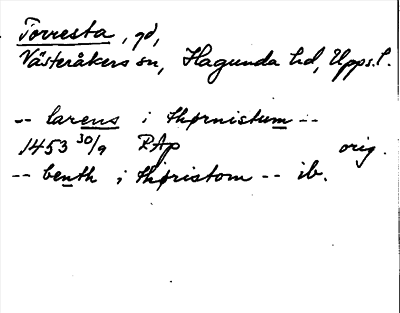 Torresta, gd,
Västeråkers sn, Hagunda hd, Upps. l.
-- larens i thørnistum --
1453 30/9 RAp orig.
-- benth i thøristom -- ib.